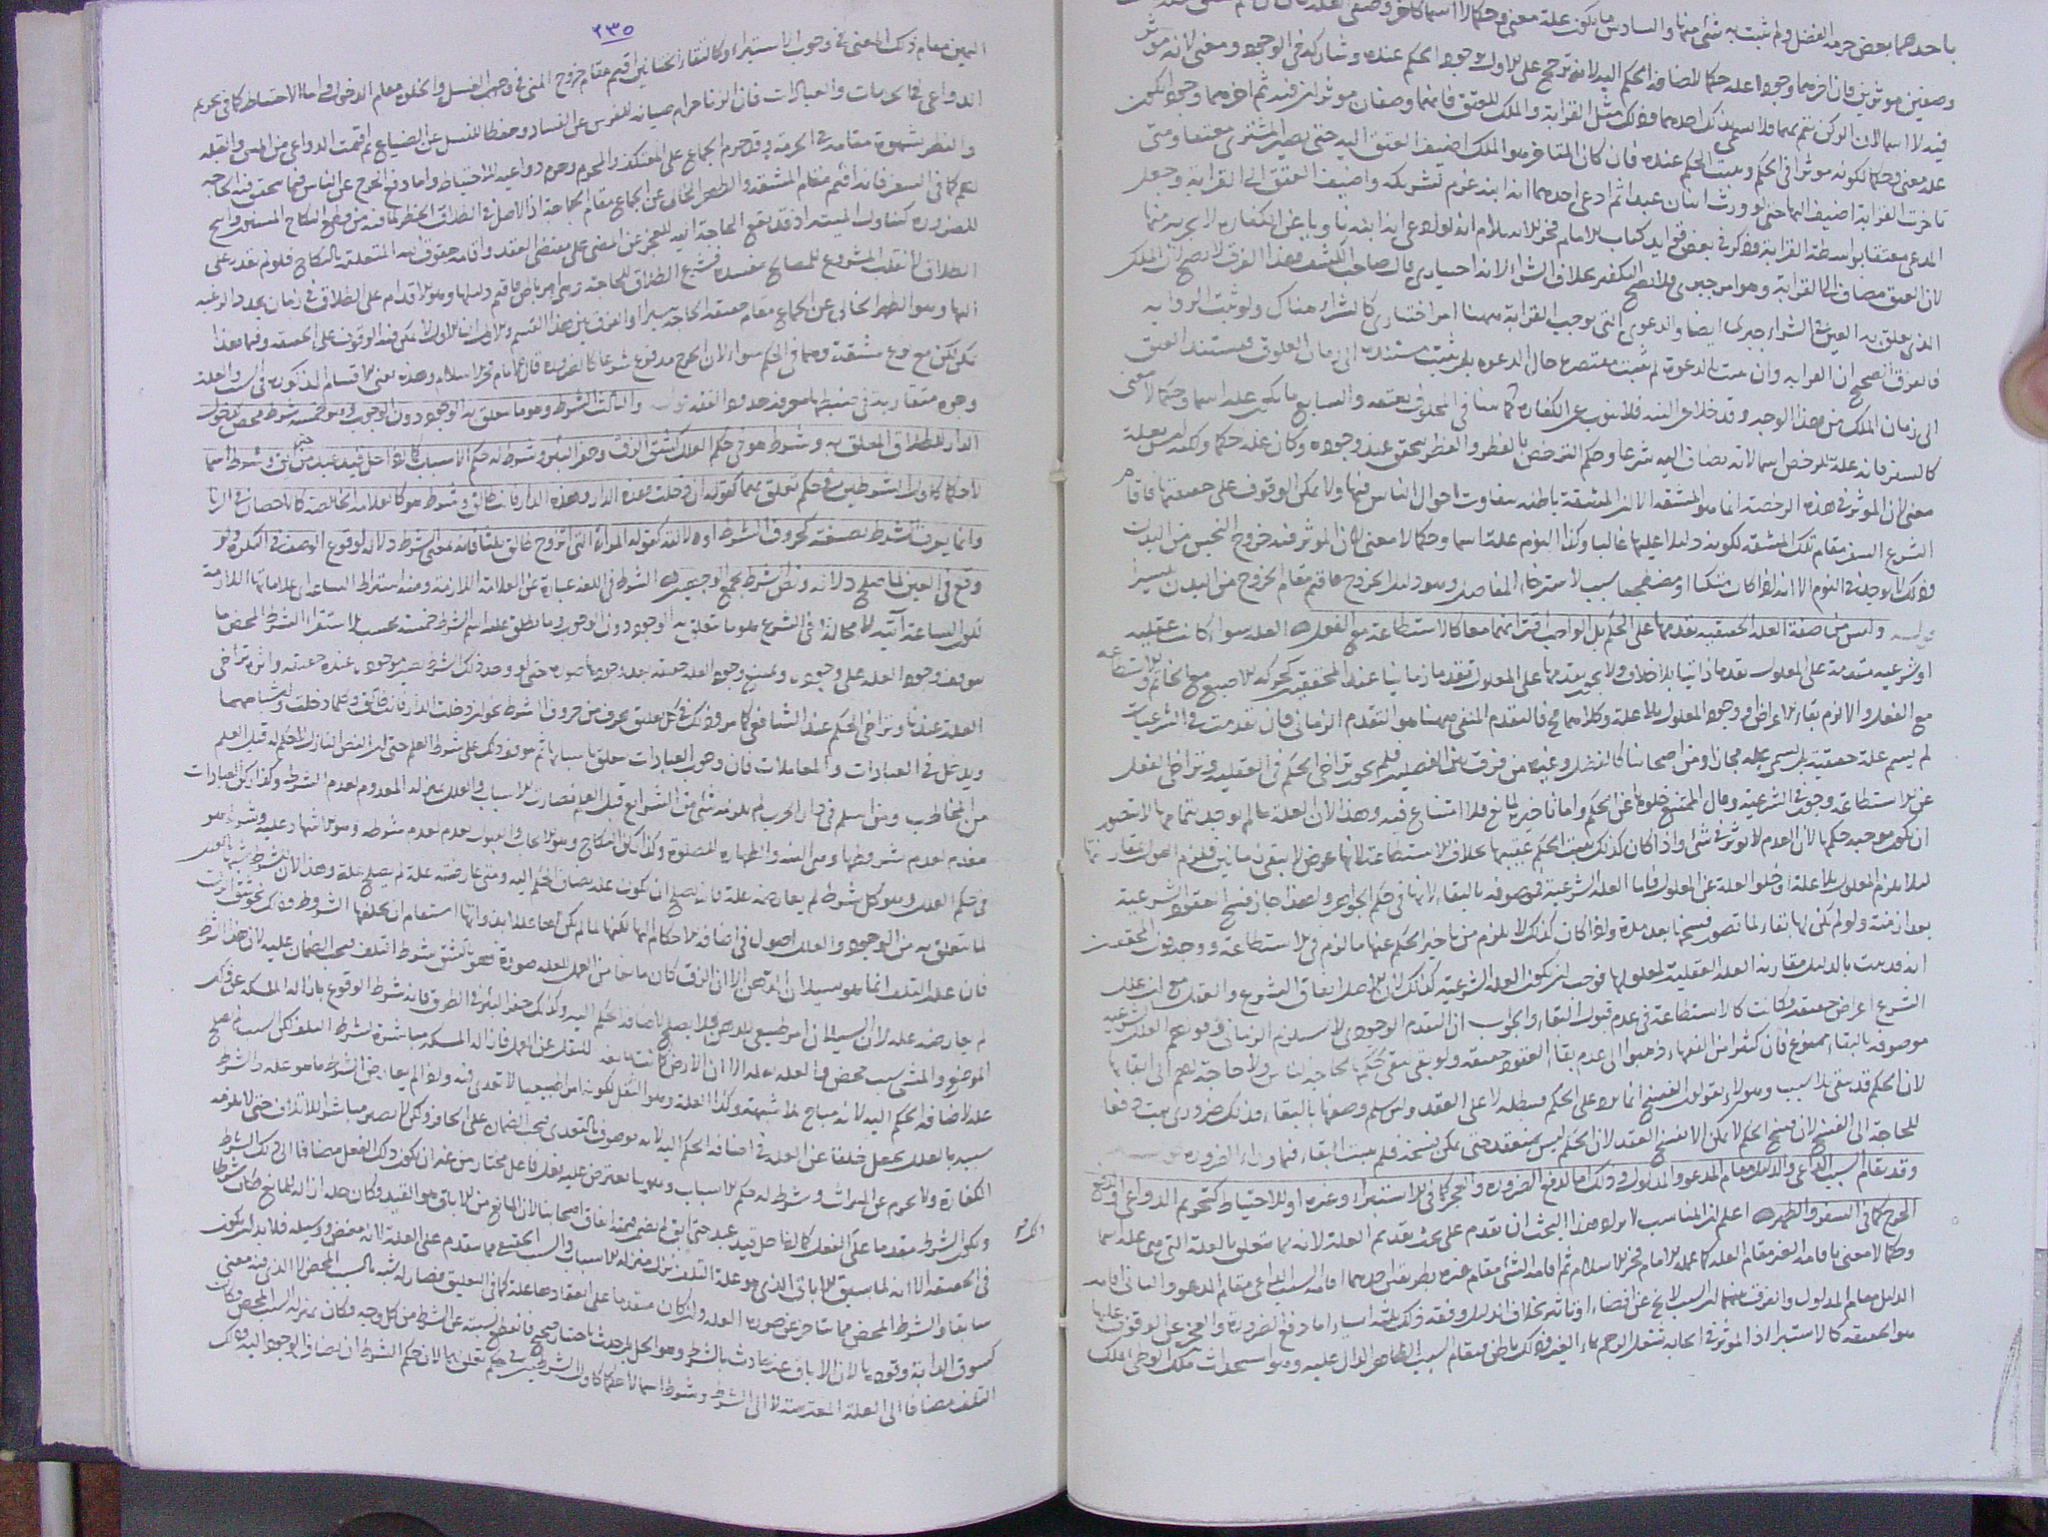 باحدهما بعض حرمة الفضل ولم يثبت به شئ منها والسادس ما يكون علة معنى وحكما لا اسما كاخر وصفى العلة
وصفين موثرين فان اخرهما وجودا علة حكما لاضافة الحكم اليه لانه ترجح على الاول بوجود الحكم عنده وشاركه فى الوجوه ومعنى لانه موثر
فيه لا اسما لان الركن يتم بهما فلا يسمى بذلك احدهما وذلك مثل القرابة والملك للعتق فانهما وصفان موثران فيه ثم اخرهما وجودا يكون
علة معنى وحكما لكونه موثرا فى الحكم ويثبت الحكم عنده فان كان المتاخر هو الملك اضيف العتق اليه حتى يصير المشترى معتقا ومتى
تاخرت القرابة اضيف اليها حتى لو ورث اثنان عبدا ثم ادعى احدهما انه ابنه غرم لشريكه واضيف العتق الى القرابة وجعل
المدعى معتقا بواسطة القرابة وذكر فى بعض فوايد كتاب الامام فخر الاسلام انه لو ادعى انه ابنه ناويا عن الكفارة لا يجزيه عنها
لان العتق مضاف الى القرابة وهو امر جبرى فلا يصح التكفير بخلاف الشرا لانه اختيارى قال صاحب الكشف هذا الفرق لا يصح لان الملك
الذى تعلق به العتق فى الشراء جبرى ايضا والدعوى التى توجب القرابة ههنا امر اختيارى كالشراء هناك ولو ثبت الرواية
فالفرق الصحيح ان القرابة وان ثبتت بالدعوة لم تثبت مقتصرة حال الدعوة بل يثبت مستندة الى زمان العلوق فيستند العتق
الى زمان الملك من هذا الوجه وقد خلا عن النية فلا ينوب عن الكفارة والسابع ما يكون علة اسما وحكما لا معنى
كالسفر فانه علة للرخص اسما لانه تضاف اليه شرعا وحكم الترخص بالفطر والفطر يتحقق عند وجوده وكان علة حكما ولكنه ليس بعلة
معنى لان الموثر فى هذه الرخصة انما هو المشقة الا ان المشقة باطنة يتفاوت احوال الناس فيها ولا يمكن الوقوف على حقيقتها فاقام
الشرع السفر مقام تلك المشقة لكونه دليلا عليها غالبا وكذا النوم علة اسما وحكما لا معنى لان الموثر فيه خروج النجس من البدن
وذلك لا يوجد فى النوم الا انه اذا كان متكئا او مضطجعا سبب لاسترخاء المفاصل وهو دليل الخروج فاقيم مقام الخروج من البدن تيسيرا
قوله وليس من صفة العلة الحقيقية تقدمها على الحكم بل الواجب اقترانهما معا كالاستطاعة مع الفعل العلة سواء كانت عقلية
او شرعية متقدمة على المعلول تقدما ذاتيا بلا خلاف ولا يجوز تقدمها على المعلول تقدما زمانيا عند المحققين كحركة الاصبع مع الخاتم والاستطاعة
مع الفعل والا لزم بقاء الاعراض او وجود المعلول بلا علة وكلاهما مح فالتقدم المنفى ههنا هو التقدم الزمانى فان تقدمت فى الشرعيات
لم يسم علة حقيقية بل يسمى علة مجازا ومن اصحابنا كالفضلى وغيره من فرق بين الفصلين فلم يجوز تراخى الحكم فى العقلية وتراخى الفعل
عن الاستطاعة وجوزه فى الشرعية وقال الممتنع خلوها عن الحكم واما تاخير لمانع فلا امتناع فيه وهذا لان العلة ما لم يوجد بتمامها لا يتصور
ان يكون موجبة حكمها لان العدم لا يوثر فى شئ واذا كان كذلك يثبت الحكم عقيبها بخلاف الاستطاعة لانها عرض لا يبقى زمانين فلزم القول بمقارنتها
ليلا يلزم المعلول بلا علة او خلو العلة عن المعلول فاما العلة الشرعية فموصوفة بالبقاء لانها فى حكم الجواهر ولهذا جاز فسخ العقود الشرعية
بعد ازمنة ولو لم يكن لها بقاء لما تصور فسخها بعد مدة واذا كان كذلك لا يلزم من تاخير الحكم عنها ما لزم فى الاستطاعة ووجه قول المحققين
انه قد ثبت بالدليل مقارنة العلة العقلية لمعلولها فوجب ان يكون العلة الشرعية كذلك لان الاصل اتفاق الشرع والعقل مع ان علل
الشرع اعراض حقيقة وكانت كالاستطاعة فى عدم قبول البقاء والجواب ان التقدم الوجودى لا يستلزم الزمانى وقولهم العلل الشرعية
موصوفة بالبقاء ممنوع فان كثيرا من الفقهاء ذهبوا الى عدم بقاء العقود حقيقة ولو بقى يبقى حكمها لحاجة الناس ولا حاجة لهم الى ابقائها
لان الحكم قد يبقى بلا سبب وهولاء يقولون الفسخ انما يرد على الحكم فيبطله لا على العقد ولئن سلم وصفها بالبقاء فذلك ضرورى يثبت دفعا
للحاجة الى الفسخ لان فسخ الحكم لا يمكن الا بفسخ العقد لان الحكم ليس بمنعقد حتى يمكن فسخه فلم يثبت البقاء فيما وراء الضرورة قوله
وقد يقام السبب الداعى والدليل مقام المدعو والمدلول وذلك اما لدفع الضرورة والعجز كما فى الاستبراء وغيره او للاحتياط كتحريم الدواعى او لدفع
الحرج كما فى السفر والطهر اعلم ان المناسب لايراد هذا البحث ان تقدم على بحث تقديم العلة لانه مما يتعلق بالعلة التى هى علة اسما
وحكما لا معنى باقامة الغير مقام العلة كما عمله الامام فخر الاسلام ثم اقامة الشئ مقام غيره بطريقين احدهما اقامة السبب الداعى مقام المدعو والثانى اقامة
الدليل مقام المدلول والفرق بينهما ان السبب لا يخ عن افضاء او تاثير بخلاف الدليل وفقه ذلك ثلثة اسباب اما دفع الضرورة والعجز عن الوقوف على ما
هو الحقيقة كالاستبراء اذ الموثر فى ايجابه شغل الرحم بماء الغير وذلك باطن فيقام السبب الظاهر الدال عليه وهو استحداث ملك الوطى بملك
٢٣٥
اليمين مقام ذلك المعنى فى وجوب الاستبراء وكالتقاء الختانين اقيم مقام خروج المنى فى وجوب الغسل والخلوة مقام الدخول واما للاحتياط كما فى تحريم
الدواعى فى الحرمات والعبادات فان الزنا حرام صيانة للفرش عن الفساد وحفظا للنسل عن الضياع ثم اقيمت الدواعى من المس والقبلة
والنظر بشهوة مقامه فى الحرمة وقد حرم الجماع على المعتكف والمحرم وحرم دواعيه للاحتياط واما دفع الحرج عن الناس فيما يتحقق فيه الحاجة
لهم كما فى السفر فانه اقيم مقام المشقة والطهر الخالى عن الجماع مقام الحاجة اذ الاصل فى الطلاق الحظر لما فيه من قطع النكاح المسنون وابيح
للضرورة كتناول الميتة اذ قد يقع الحاجة اليه للعجز عن المضى على مقتضى العقد واقامة حقوق الله المتعلقة بالنكاح فلو لم نقدر على
الطلاق لانقلب المشروع للمصالح مفسدة فشرع الطلاق للحاجة وهى امر باطن فاقيم دليلها وهو الاقدام على الطلاق فى زمان تجدد الرغبة
اليها وهو الطهر الخالى عن الجماع مقام حقيقة الحاجة تيسيرا والفرق بين هذا القسم والاول ان الاول لا يمكن فيه الوقوف على الحقيقة وفيما هذا
يمكن لكن مع نوع مشقة وهما فى الحكم سواء لان الحرج مدفوع شرعا كالضرورة قال الامام فخر الاسلام وهذه يعنى الاقسام المذكورة فى السبب والعلة
وجوه متقاربة فى ضبطها معرفة حدود الفقه قوله والثالث الشرط وهو ما يتعلق به الوجود دون الوجوب وهو خمسة شرط محض كدخول
الدار للطلاق المعلق به وشرط هو فى حكم العلل كشق الزق وحفر البئر وشرط له حكم الاسباب كما اذا حل قيد عبد حتى ابق وشرط اسما
لا حكما كاول الشرطين فى حكم تعلق بهما كقوله ان دخلت هذه الدار وهذه الدار فانت طالق وشرط هو كالعلامة الخالصة كالاحصان فى الزنا
وانما يعرف الشرط بصيغته كحروف الشرط او دلالته كقوله المراة التى اتزوج طالق ثلثا فانه بمعنى الشرط دلالة لوقوع الوصف فى النكرة ولو
وقع فى العين لما صلح دلالة ونص الشرط يجمع الوجهين الشرط فى اللغة عبارة عن العلامة اللازمة ومنه اشتراط الساعة اى علاماتها اللازمة
لكون الساعة آتية لا محالة وفى الشرع هو ما يتعلق به الوجود دون الوجوب وما يطلق عليه اسم الشرط خمسة بحسب الاستقراء الشرط المحض ما
يتوقف وجود العلة على وجوده ويمتنع وجود العلة حقيقة بعد وجودها صورة حتى لو وجد ذلك الشرط تصير موجودة عنده حقيقة واثره تراخى
العلة عندنا وتراخى الحكم عند الشافعى كما مر وذلك فى كل تعليق بحرف من حروف الشرط نحو ان دخلت الدار فانت طالق وكلما دخلت واشباههما
ويدخل فى العبادات والمعاملات فان وجوب العبادات معلق باسبابها ثم يتوقف ذلك على شرط العلم حتى ان النص النازل لا حكم له قبل العلم
من المخاطب ومن اسلم فى دار الحرب لم يلزمه شئ من الشرائع قبل العلم فصارت الاسباب والعلل بمنزلة المعدوم لعدم الشرط وكذا ركن العبادات
ينعدم لعدم شروطها وهى النية والطهارة للصلوة وكذا ركن النكاح وهو الايجاب والقبول ينعدم لعدم شرطه وهو الاشهاد عليه وشرط هو
فى حكم العلل وهو كل شرط لم يعارضه علة فانه يصلح ان يكون علة يضاف الحكم اليه ومتى عارضته علة لم يصلح علة وهذا لان للشرط شبها بالعلل
لما يتعلق به من الوجود والعلل اصول فى اضافة الاحكام اليها لكنها لما لم يكن عللا بذواتها استقام ان يخلفها الشروط وذلك نحو شق الزق
فان علة التلف انما هو سيلان الدهن الا ان الزق كان مانعا من العمل للعلة صورة فهو بالشق شرط التلف فيجب الضمان عليه لان هذا الشرط
لم يعارضه علة لان السيلان امر طبيعى للدهن ولا يصلح لاضافة الحكم اليه وكذلك حفر البئر فى الطريق فانه شرط الوقوع بازالة المسكة عن ذلك
الموضع والمشى سبب محض والعلة ثقله الا ان الارض كانت مانعة للثقل عن العمل فازالة المسكة مباشرة شرط التلف لكن السبب لا يصلح
علة لاضافة الحكم اليه لانه مباح بلا شبهة وكذا العلة وهو الثقل لكونه امرا طبيعيا لا تعدى فيه واذا لم يعارض الشرط ما هو علة والشرط
شبيه بالعلل يجعل خلفا عن العلة فى اضافة الحكم اليه لانه موصوف بالتعدى فيجب الضمان على الحافر ولكن لا يصير مباشرا للاتلاف حتى لا يلزمه
الكفارة ولا يحرم عن الميراث وشرط له حكم الاسباب وهو ما يعترض عليه فعل فاعل مختار من غير ان يكون ذلك الفعل مضافا الى ذلك الشرط
ويكون الشرط مقدما على الفعل كما اذا حل قيد عبد حتى ابق لم يضمن قيمته اتفاق اصحابنا لان المانع من الاباق هو القيد وكان حله ازالة للمانع فكان شرطا
فى الحقيقة الا انه لما سبق الاباق الذى هو علة التلف نزل منزلة الاسباب والسبب الحقيقى مما يتقدم على العلة لانه مفض ووسيلة فلا بد ان يكون
سابقا والشرط المحض مما يتاخر عن صورة العلة وان كان متقدما على انعقادها علة كما فى التعليق فصار له شبه بالسبب المحض لا الذى فيه معنى
كسوق الدابة وقودها لان الاباق غير حادث بالشرط وهو الحل بل حدث باختيار صحيح فانقطع نسبته عن الشرط من كل وجه فكان بمنزلة السبب المحض وكان
التلف مضافا الى العلة المعترضة لا الى الشرط وشرط اسما لا حكما كاول الشرطين فى حكم تعلق بهما لان حكم الشرط ان يضاف الوجود اليه وذلك